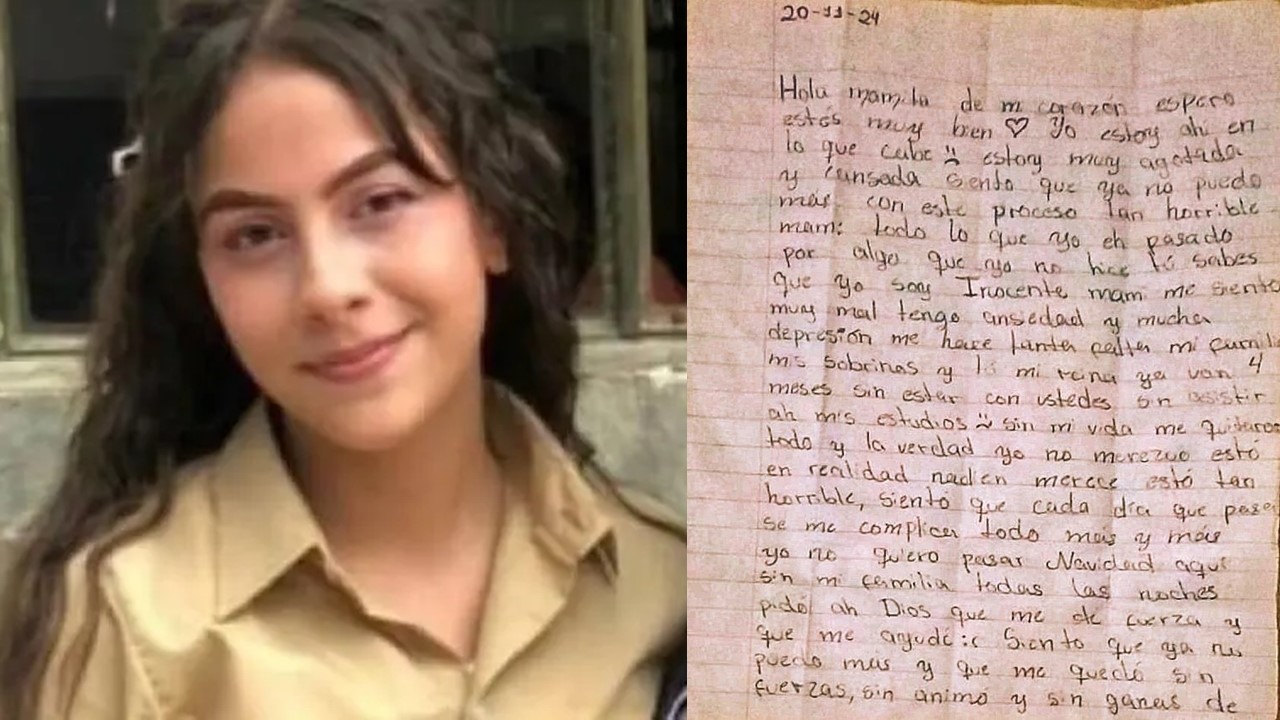 20-11-24
Hola mamita de mi corazón espero
estés muy bien ♡ Yo estoy ahí en
lo que cabe estoy muy agotada
y cansada siento que ya no puedo
más con este proceso tan horrible
mami todo lo que yo eh pasado
por algo que yo no hice tú sabes
que yo soy Inocente mami me siento
muy mal tengo ansedad y mucha
depresión me hace tanta falta mi famili
mis sobrinas y tú mi reina ya van 4
meses sin estar con ustedes sin asistir
ah mis estudios sin mi vida me quitaron
todo y la verdad yo no merezco estó
en realidad nadien merece estó tan
horrible, siento que cada día que pasa
se me complica todo más y más
yo no quiero pasar Navidad aquí
sin mi familia todas las noches
pidó ah Dios que me de fuerza y
que me ayude :c Siento que ya no
puedo mas y que me quedó sin
fuerzas, sin animo y sin ganas de